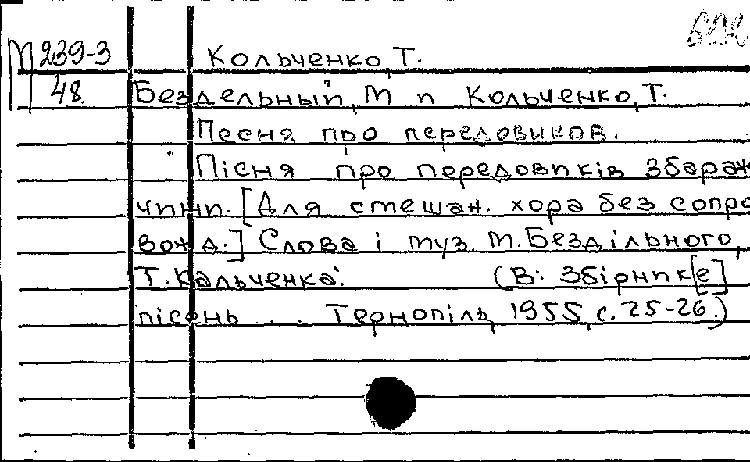 М 239-3
48
Кольченко, Т.
Бездельный, М и Кольченко, Т.
Песня про передовиков.
Пісня про передовиків Збараж
чини. [Для смешан. хора без сопро
вожд.] Слова і муз. М. Бездільного,
Т. Кальченка. (В: Збірник[е]
пісень . . Тернопіль, 1955, с. 25-26.)